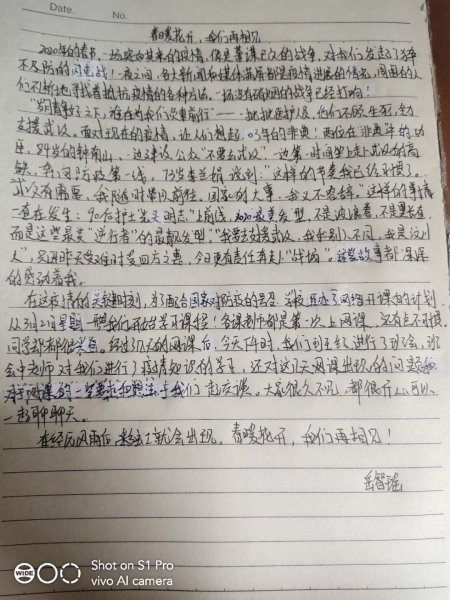 Date.
No.
春暖花开,我们再相见
2020年的春节,一场突如其来的疫情,像是蓄谋已久的战争,对我们发起了猝
不及防的闪电战!一夜之间,各大新闻和媒体满屏都是疫情进展的情况,周围的人
们不断地寻找着抵抗疫情的各种方法。一场没有硝烟的战争已经打响!
岁月静好之下,谁在为我们负重前行”——一批批医护人员,他们不顾生死,全力
支援武汉。面对现在的疫情,让人们想起,03年的非典!两位在非典年的功
臣,84岁的钟南山,一边建议公众“不要去武汉”一边第一时间坐上赶武汉的高
铁,奔向防疫第一线,73岁李兰娟说到“这样的节奏我已经习惯了。
武汉有需要,我随时可以前往,国家的大事,我义不容辞。”这样的事情
一直在发生:90后护士
“上前线,2020最美发型,不是波浪卷,不是
而是这些最美“逆行者”的最靓发型。“我要去支援武汉,我和别人不同,我是汶川
人”,只因昨天受难时受四方之惠,今日更有责任有赴“战场”。这些故事都深深
的感动着我。
在这疫情的关键时刻,为了配合国家对防疫的号召,学校
了网络开课的计划
从3月2日星期一
我们开始学习课程!各课老师都是第一次上网课,还有点不习惯,
同学都
经过几天的网课后,今天下午时,我们班主任进行了班会,班
会中老师对我们进行了疫情知识的学习,还对这几天网课出现的问题
对于网课的一些要求和想法,与我们一起交谈。大家很久不见,都很开心可以
一起聊聊天。
在经历风雨后,彩虹就会出现。春暖花开,我们再相见!
岳智瑶
WIDE
Shot on S1 Pro
vivo AI camera